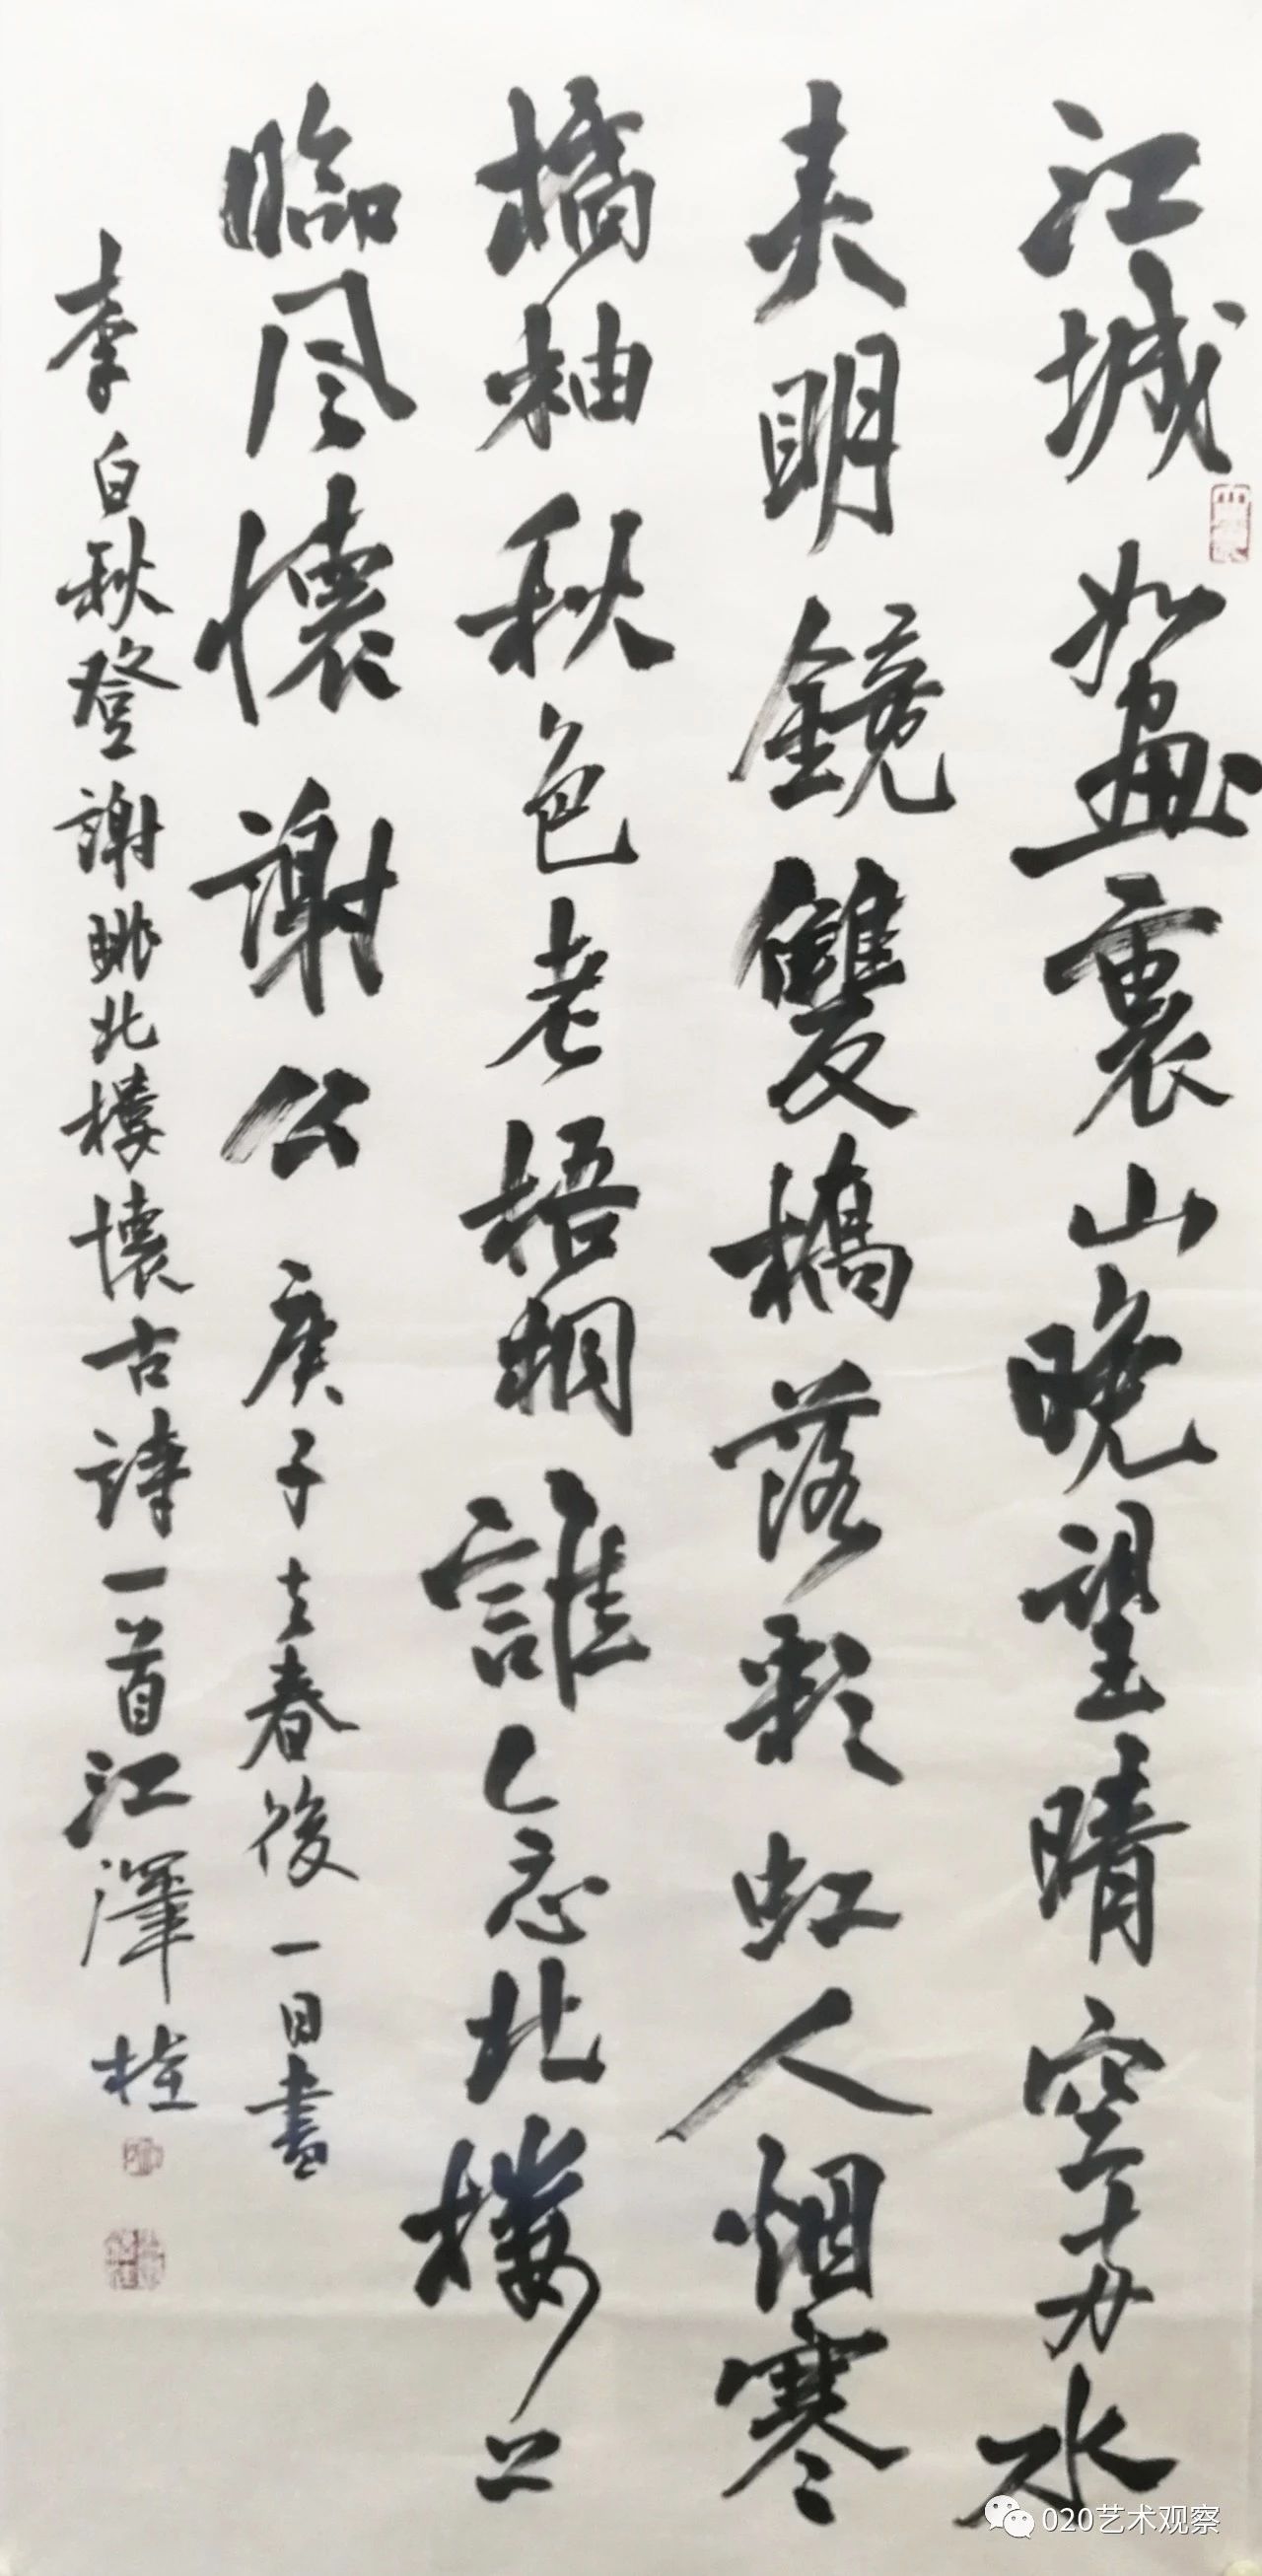 江城如畫裏山晚望晴空兩水
夾明鏡雙橋落彩虹人烟寒
橘柚秋色老梧桐誰念北樓上
臨風懷謝公 庚子立春後一日書
李白秋登謝眺北樓懷古詩一首江澤
020艺术观察